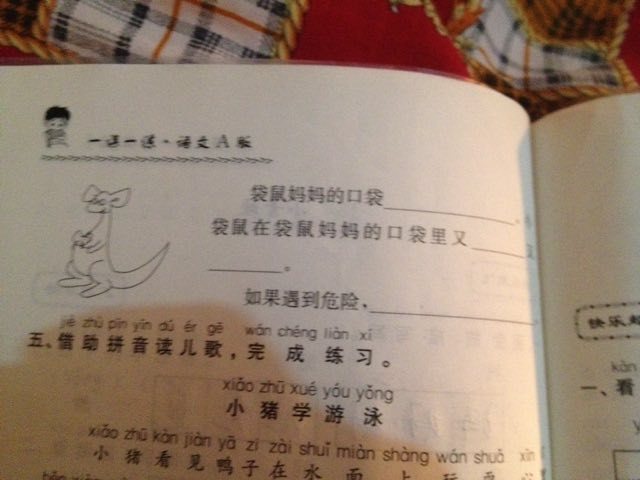 一课一练·语文A版
袋鼠妈妈的口袋____________。
袋鼠在袋鼠妈妈的口袋里又______又
______。
如果遇到危险，______________
jiè zhù pīn yīn dú ér gē wán chéng liàn xí
五、借助拼音读儿歌，完成练习。
xiǎo zhū xué yóu yǒng
小猪学游泳
xiǎo zhū kàn jiàn yā zi zài shuǐ miàn shàng wán shuǎ xīn
小猪看见鸭子在水面上玩耍心
快乐
kàn
一、看